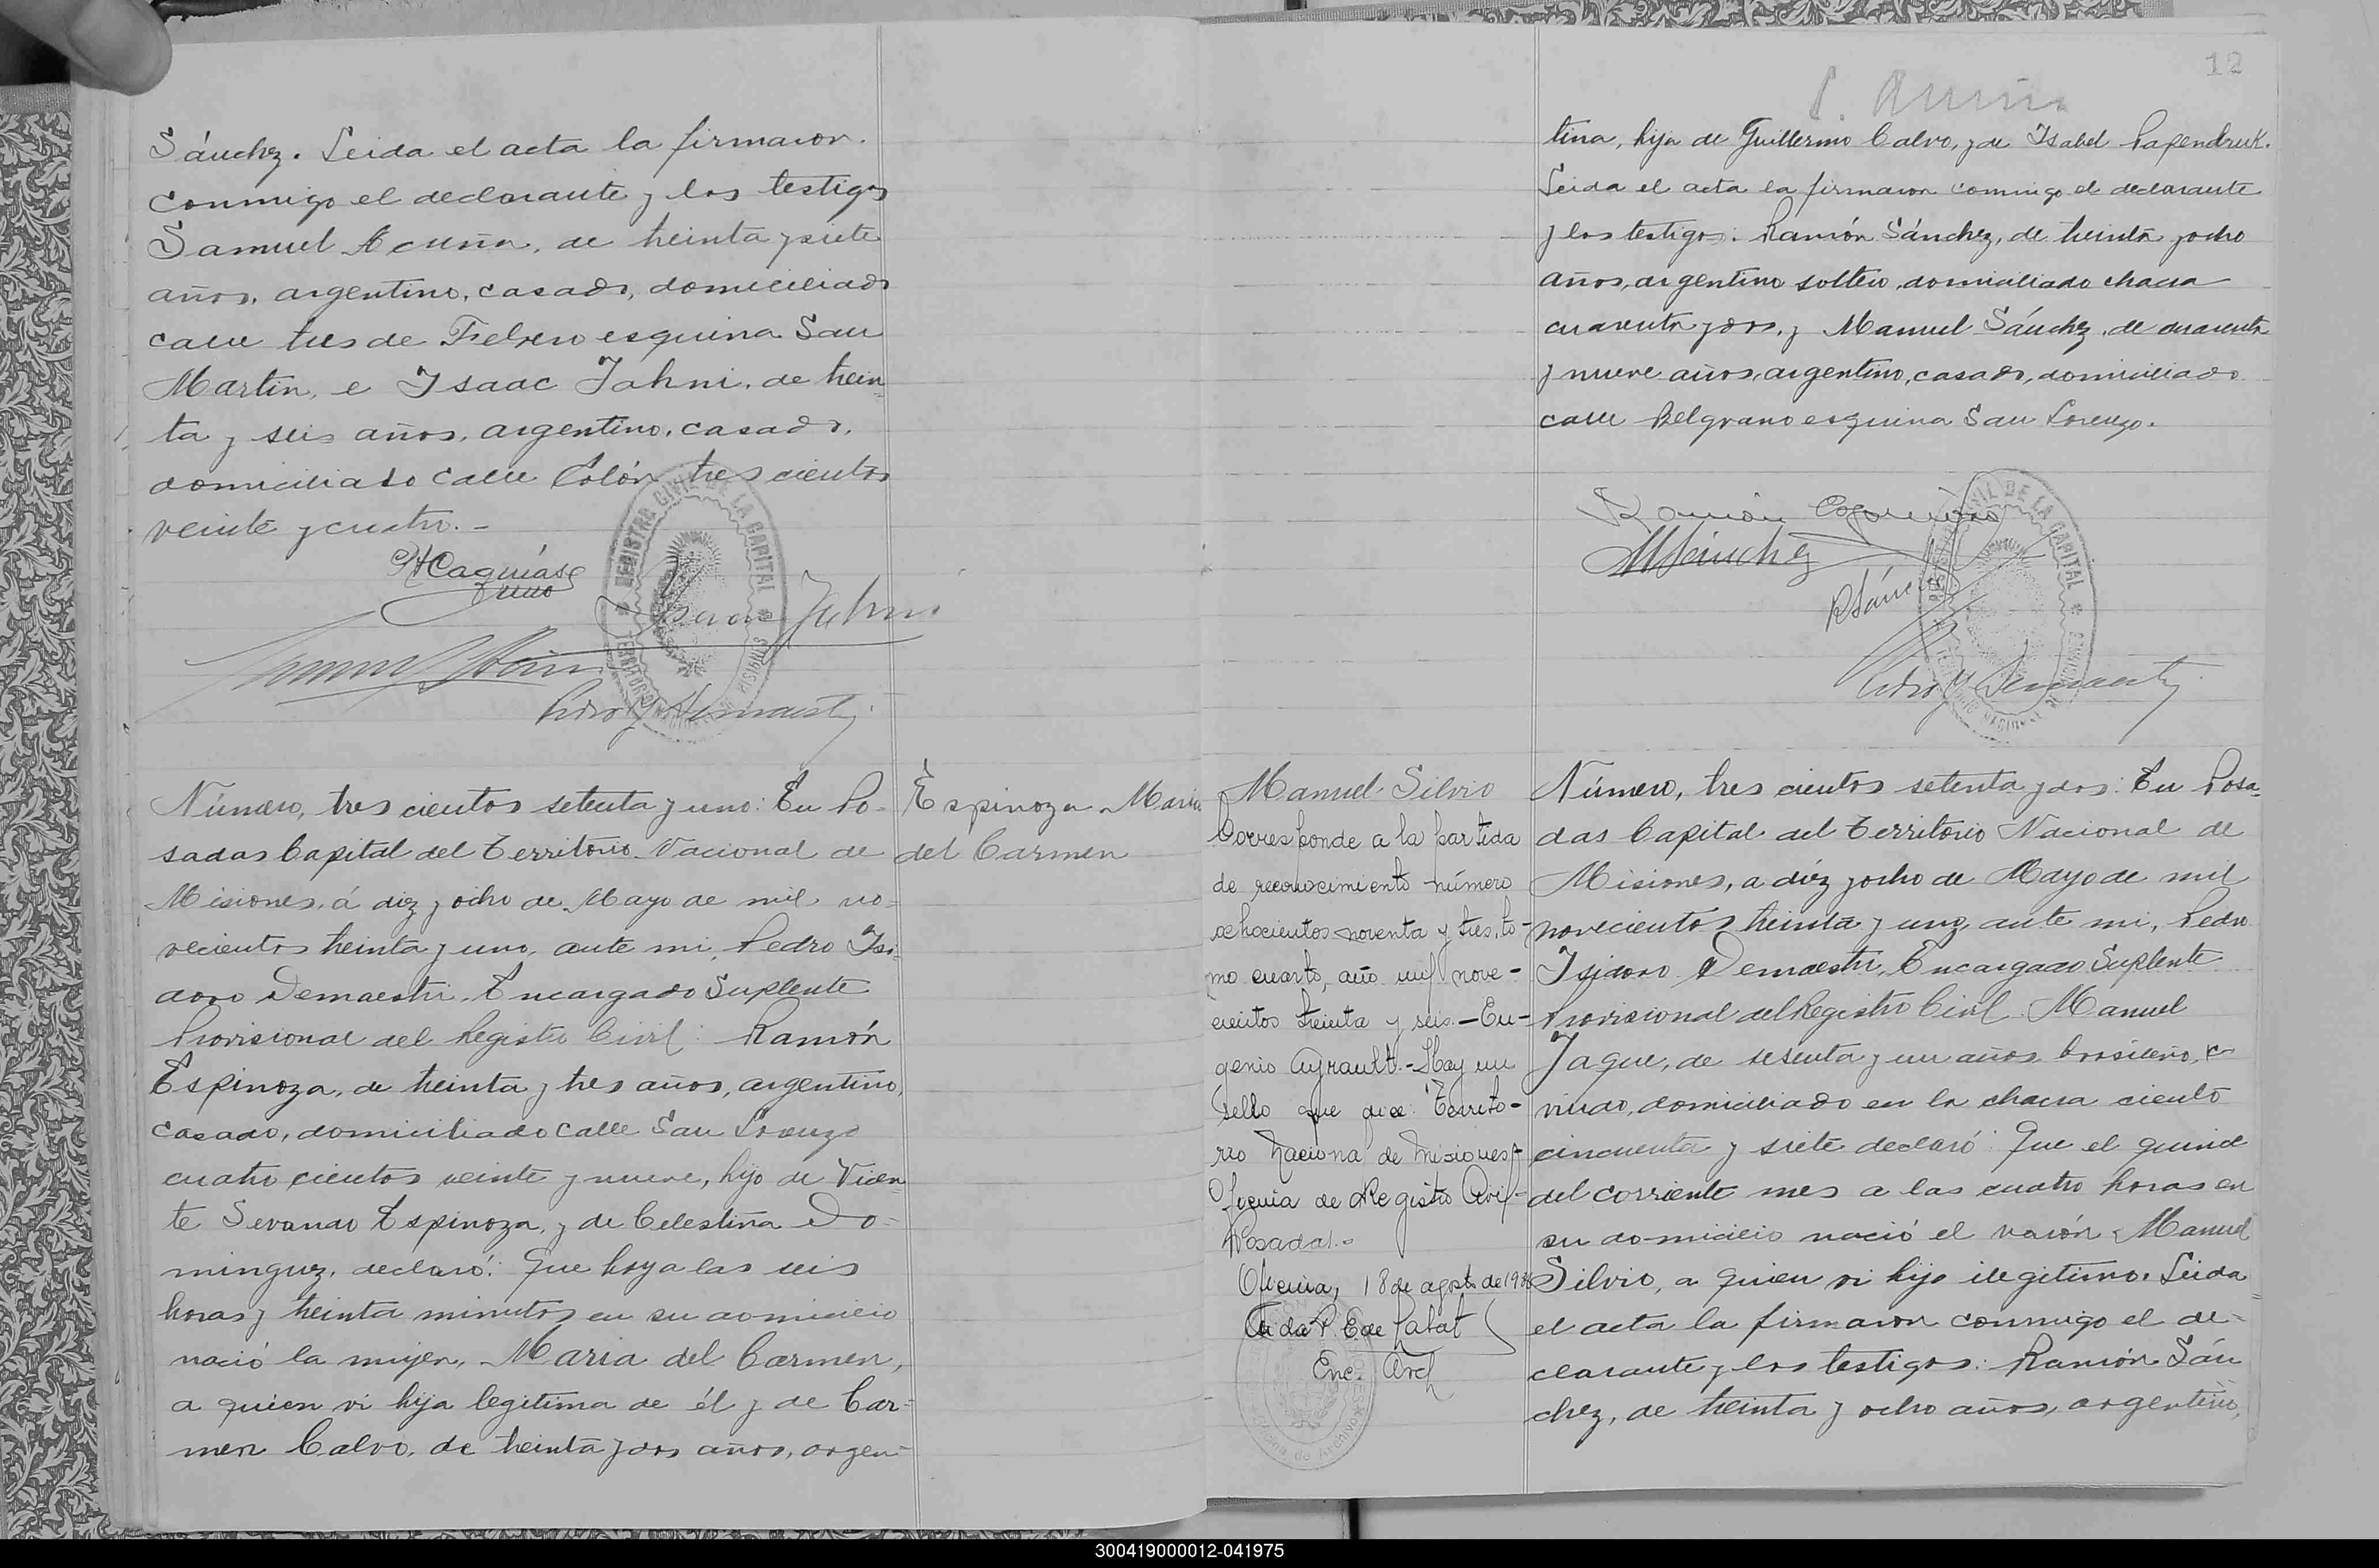 Sánchez. Leida el acta la firmaron
conmigo el declarante y los testigos
Samuel Acuña, de treinta y siete
años, argentino, casado, domiciliado
calle tres de Febrero esquina San
Martin, e Isaac Jahni, de trein
ta y seis años, argentino, casado,
domiciliado calle Colón tres cientos
veinte y cuatro. -
REGISTRO CIVIL DE LA CAPITAL
TERRITORIO NACIONAL DE MISIONES
Isaac Jahni
Pedro Y Demaestri
Número, tres cientos setenta y uno: En Po-
sadas Capital del Territorio Nacional de
Misiones, á diez y ocho de Mayo de mil no=
vecientos treinta y uno, ante mi, Pedro Isi-
doro Demaestri, Encargado Suplente
Provisional del Registro Civil: Ramón
Espinoza, de treinta y tres años, argentino,
casado, domiciliado calle San Lorenzo
cuatro cientos veinte y nueve, hijo de Vicen
te Servando Espinoza, y de Celestina Do=
minguez, declaró: Que hoy a las seis
horas y treinta minutos en su domicilio
nació la mujer, Maria del Carmen,
a quien vi hija legitima de él y de Car=
men Calvo, de treinta y dos años, argen=
Espinoza Maria
del Carmen
12
tina, hija de Guillermo Calvo, y de Isabel Papendruk.
Leida el acta la firmaron conmigo el declarante
y los testigos: Ramón Sánchez, de treinta y ocho
años, argentino soltero, domiciliado chacra
cuarenta y dos, y Manuel Sánchez, de cuarenta
y nueve años, argentino, casado, domiciliado
calle Belgrano esquina San Lorenzo.
Ramón Espinoza
MSánchez
RSánchez
REGISTRO CIVIL DE LA CAPITAL
TERRITORIO NACIONAL DE MISIONES
Pedro Y Demaestri
Manuel Silvio
Corresponde a la partida
de reconocimiento número
ochocientos noventa y tres, to-
mo cuarto, año mil nove-
cientos treinta y seis.-Eu-
genio Ayrault.-Hay un
sello que dice: Territo-
rio Nacional de Misiones-
Oficina de Registro Civil-
Posadas.-
Oficina, 18 de agosto de 1936
Enc. Arch
Número, tres cientos setenta y dos: En Posa=
das Capital del Territorio Nacional de
Misiones, a diez y ocho de Mayo de mil
novecientos treinta y uno, ante mi, Pedro
Isidoro Demaestri, Encargado Suplente
Provisional del Registro Civil: Manuel
Jaque, de sesenta y un años brasileño,
viudo, domiciliado en la chacra ciento
cincuenta y siete declaró: Que el quince
del corriente mes a las cuatro horas en
su domicilio nació el varón, Manuel
Silvio, a quien vi hijo ilegitimo. Leida
el acta la firmaron conmigo el de-
clarante y los testigos: Ramón Sán
chez, de treinta y ocho años, argentino,
300419000012-041975